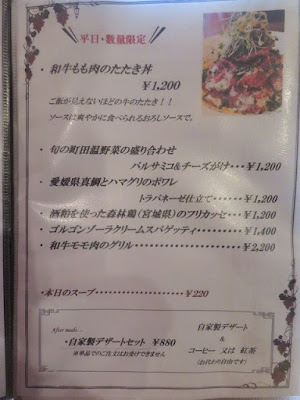 平日・数量限定
・和牛もも肉のたたき丼
￥1,200
ご飯が見えないほどの牛のたたき！！
ソースは爽やかに食べられるおろしソースで。
・旬の町田温野菜の盛り合わせ
バルサミコ&チーズがけ・・・￥1,200
・愛媛県真鯛とハマグリのポワレ
トラパネーゼ仕立て・・・・・・￥1,200
・酒粕を使った森林鶏（宮城県）のフリカッセ・・・￥1,200
・ゴルゴンゾーラクリームスパゲッティ・・・・・・￥1,400
・和牛モモ肉のグリル・・・・・・・・・・￥2,200
・本日のスープ・・・・・・・・・・・・・・・￥220
After meals…
・自家製デザートセット ￥880
※単品でのご注文はお受けできません
自家製デザート
&
コーヒー 又は 紅茶
（お代わり自由です）